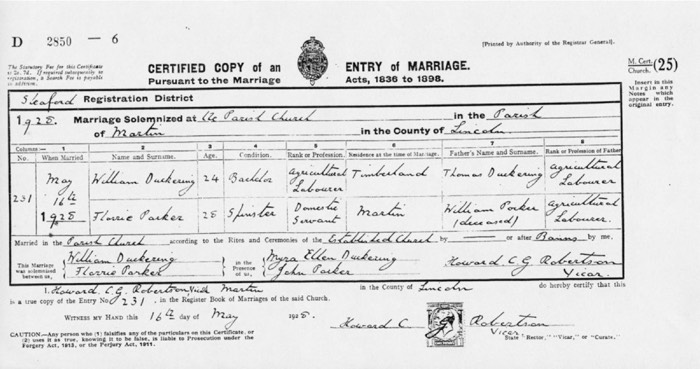 D 2850 — 6
[Printed by Authority of the Registrar General.
CERTIFIED COPY of an ENTRY OF MARRIAGE.
Pursuant to the Marriage Acts, 1836 to 1898.
M. Cert. Church. (25)
The Statutory Fee for this Certificate is 2s. 7d. If required subsequently to registration, a Search Fee is payable in addition.
Insert in this Margin any Notes which appear in the original entry.
Sleaford Registration District
1928. Marriage Solemnized at the Parish Church in the Parish
of Martin in the County of Lincoln
Columns:— 1 2 3 4 5 6 7 8
No. When Married Name and Surname. Age. Condition. Rank or Profession. Residence at the time of Marriage. Father's Name and Surname. Rank or Profession of Father
231 May 16th 1928 William Duckering 24 Bachelor Agricultural Labourer Timberland Thomas Duckering Agricultural Labourer
Florrie Parker 28 Spinster Domestic Servant Martin William Parker (deceased) Agricultural Labourer.
Married in the Parish Church according to the Rites and Ceremonies of the Established Church by — or after Banns by me,
This Marriage was solemnized between us, William Duckering Florrie Parker in the Presence of us, Myra Ellen Duckering John Parker Howard C G Robertson Vicar.
I, Howard C.G. Robertson Vicar Martin in the County of Lincoln do hereby certify that this
is a true copy of the Entry No 231, in the Register Book of Marriages of the said Church.
WITNESS MY HAND this 16th day of May 1928.
Howard C Robertson
Vicar
State "Rector," "Vicar," or "Curate."
CAUTION.—Any person who (1) falsifies any of the particulars on this Certificate, or
(2) uses it as true, knowing it to be false, is liable to Prosecution under the
Forgery Act, 1913, or the Perjury Act, 1911.